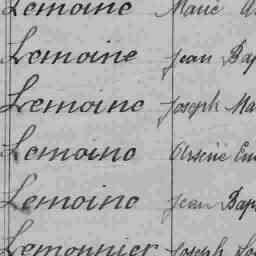 Lemoine Marie
Lemoine Jean Bap
Lemoine Joseph Ma
Lemoine Arsène Em
Lemoine Jean Bap
Lemonnier Joseph